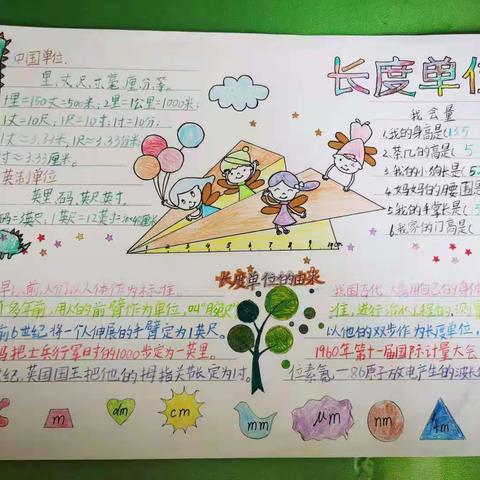 中国单位
里、丈、尺、寸、毫、厘、分、等。
1里=150丈=500米;2里=1公里=1000米;
1丈=10尺,1尺=10寸;1寸=10分;
1丈≈3.33米,1尺≈3.33分米
寸≈3.33厘米。
英制单位
英里、码、英尺、英寸。
码=3英尺,1英尺=12英寸
长度单位
我会量
1.我的身高是(135
2.茶几的高是(5
3.我的小狗长是(52
4.妈妈的腰围是
5.我的手掌长是(
6.我家的门高是(
1 2 3 4 5 6 7 8 9
长度单位的由来
早以前,人们以人体作为标准。
年前,用人的前臂作为单位,叫“腕尺”
前6世纪,将一个人伸展的手臂定为1英尺。
马把士兵行军时的1000步定为一英里。
世纪,英国国王把他的拇指关节长定为1寸。
我国古代,大禹用自己的身体
准,进行治水工程的测量
以他的双步作为长度单位,
1960年第十一届国际计量大会
位素氪—86原子放电产生的波长
m
dm
cm
mm
μm
nm